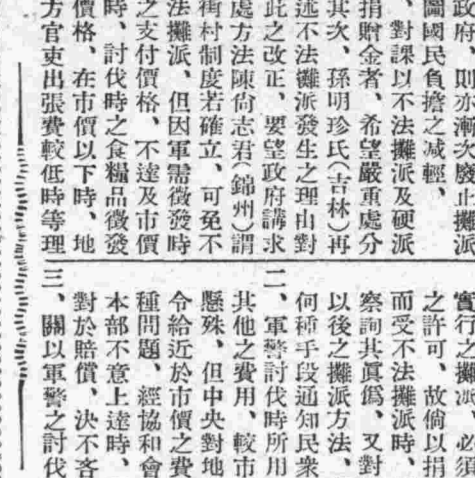 政府、則亦漸次廢止攤
圖國民負擔之減輕、
、對課以不法攤派及硬派
捐贈金者、希望嚴重處分
其次、孫明珍氏(吉林)再
述不法攤派發生之理由對
此之改正、要望政府講求
處方法陳尙志君(錦州)謂
街村制度若確立、可免不
法攤派、但因軍需徵發時
之支付價格、不達及市價
時、討伐時之食糧品徵發
價格、在市價以下時、地
方官吏出張費較低時等理
實行之攤派、必須
之許可、故倘以捐
而受不法攤派時、
察詢其眞僞、又對
以後之攤派方法、
何種手段通知民衆
二、軍警討伐時所用
其他之費用、較市
懸殊、但中央對地
令給近於市價之費
種問題、經協和會
本部不意上達時、
對於賠償、決不吝
三、關以軍警之討伐